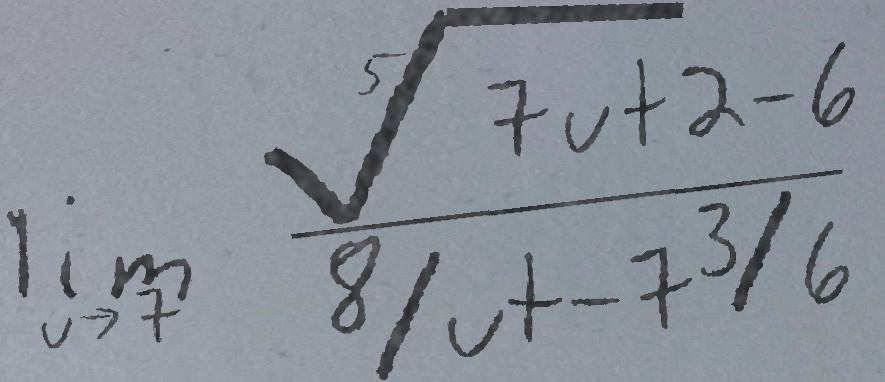 lim_{v→7} \frac{\sqrt[5]{7v+2}-6}{8/v+-7^3/6}